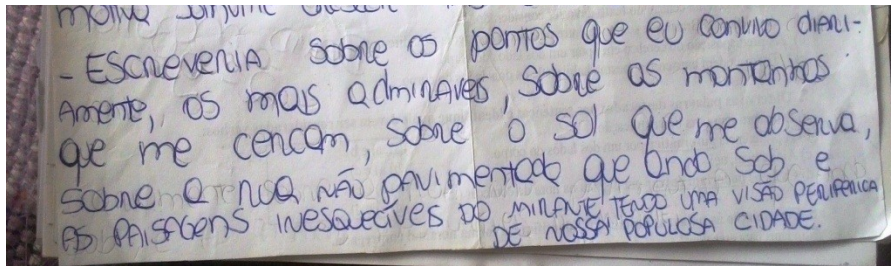 - ESCREVERIA sobre os pontos que eu convivo diari-
Amente, os mais admiraves, sobre as montanhas
que me cercam, sobre o sol que me observa,
sobre a rua não pavimentada que ando sob e
AS PAISAGENS INESQUECÍVES DO MIRANTE TENDO UMA VISÃO PERIFERICA
DE NOSSA POPULOSA CIDADE.